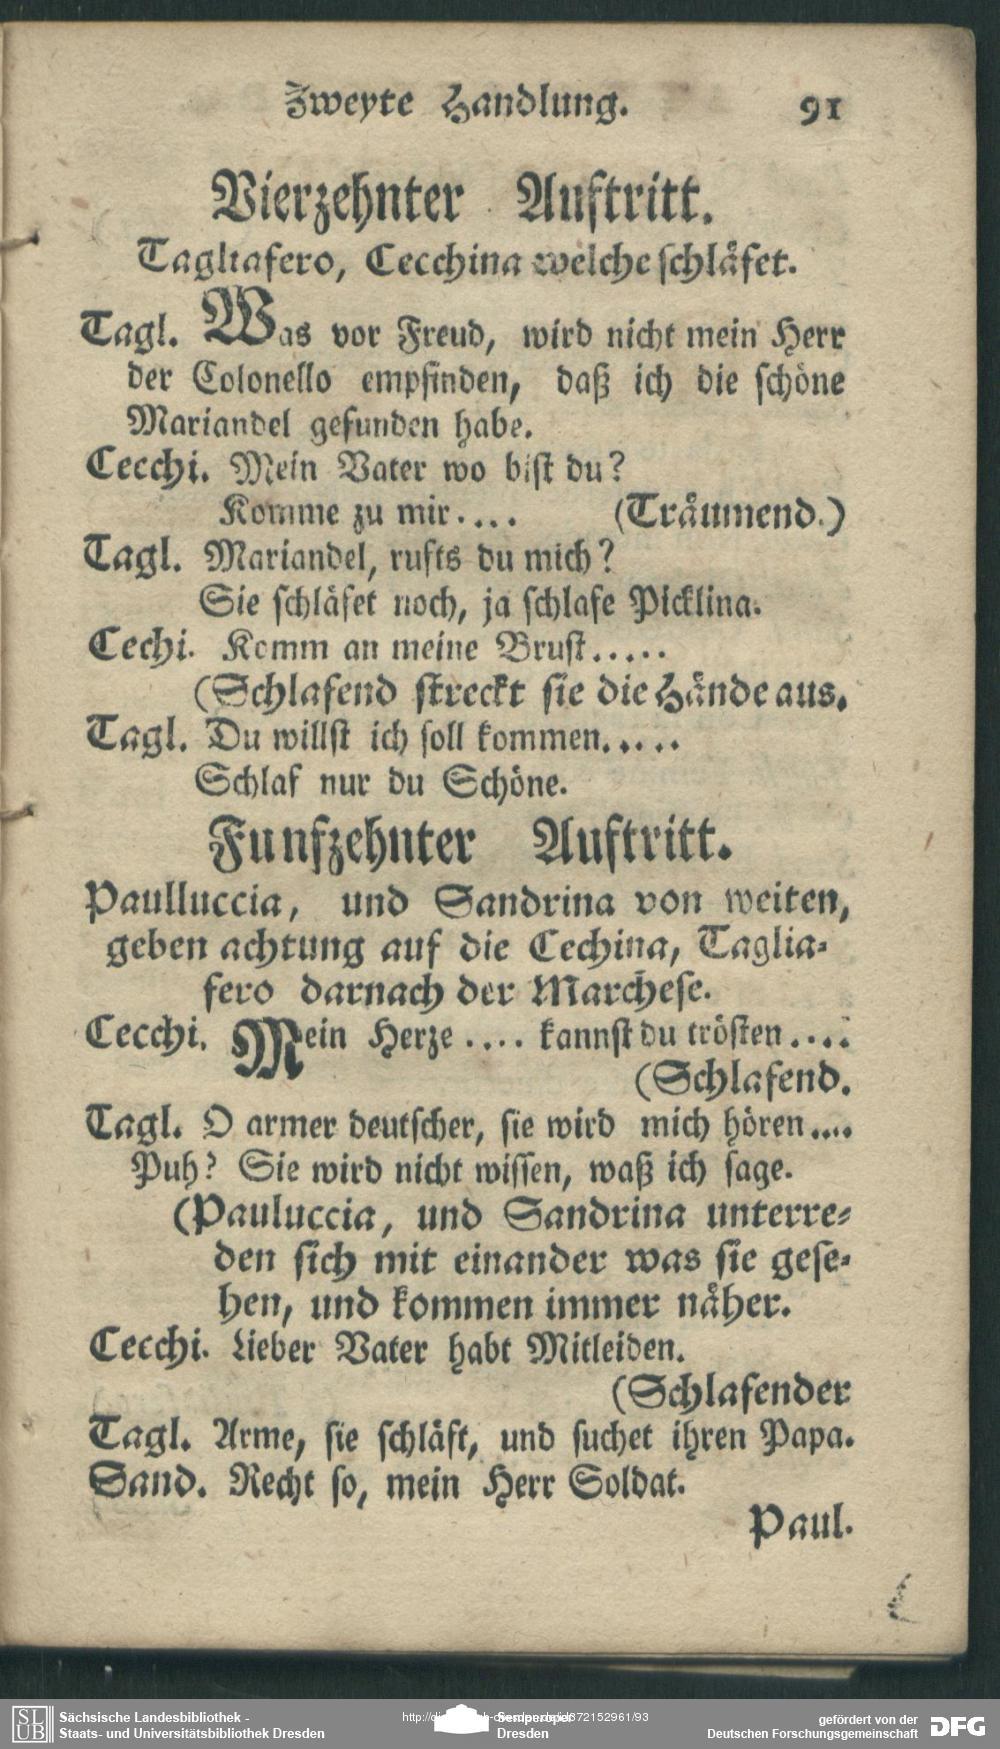 Zweyte Handlung. 91
Vierzehnter Auftritt.
Tagliafero, Cecchina welche schläfet.
Tagl. Was vor Freud, wird nicht mein Herr
der Colonello empfinden, daß ich die schöne
Mariandel gefunden habe.
Cecchi. Mein Vater wo bist du?
Komme zu mir.... (Träumend.)
Tagl. Mariandel, rufts du mich?
Sie schläfet noch, ja schlafe Picklina.
Cechi. Komm an meine Brust.....
(Schlafend streckt sie die Hände aus.
Tagl. Du willst ich soll kommen.....
Schlaf nur du Schöne.
Funfzehnter Auftritt.
Paulluccia, und Sandrina von weiten,
geben achtung auf die Cechina, Taglia-
fero darnach der Marchese.
Cecchi. Mein Herze .... kannst du trösten ....
(Schlafend.
Tagl. O armer deutscher, sie wird mich hören....
Puh? Sie wird nicht wissen, waß ich sage.
(Pauluccia, und Sandrina unterre-
den sich mit einander was sie gese-
hen, und kommen immer näher.
Cecchi. Lieber Vater habt Mitleiden.
(Schlafender
Tagl. Arme, sie schläft, und suchet ihren Papa.
Sand. Recht so, mein Herr Soldat.
Paul.
SLUB
Sächsische Landesbibliothek -
Staats- und Universitätsbibliothek Dresden
Semperoper
Dresden
gefördert von der
Deutschen Forschungsgemeinschaft
DFG